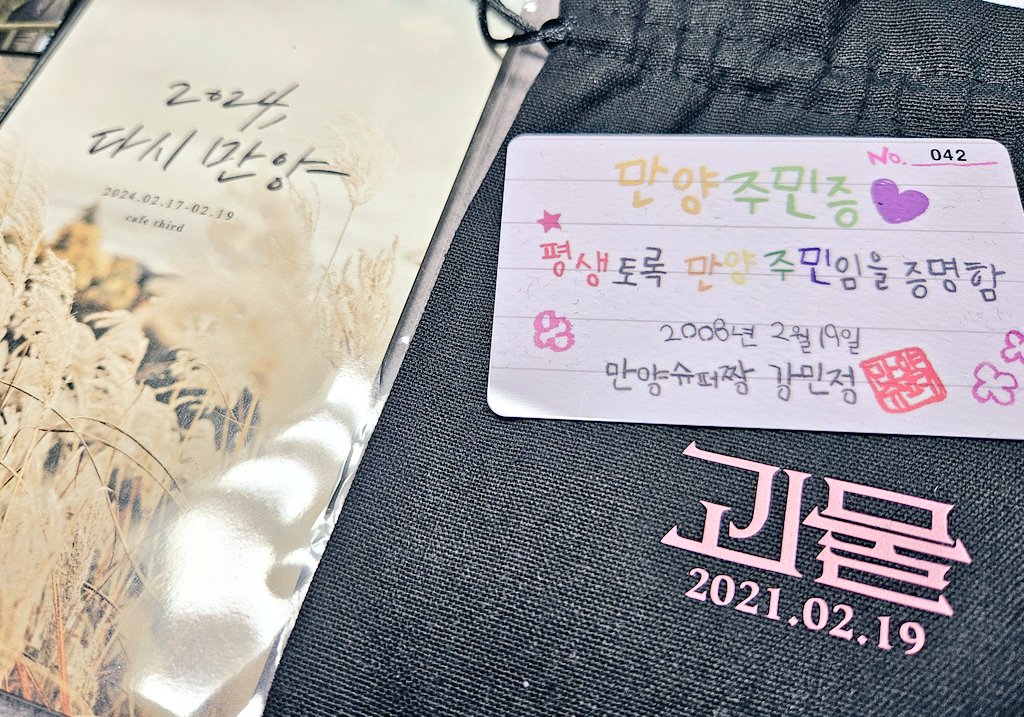 2024,
다시 만양
2024.02.17-02.19
cafe third
No. 042
만양주민증
평생토록 만양주민임을 증명함
2008년 2월 19일
만양슈퍼짱 강민정
괴물
2021.02.19